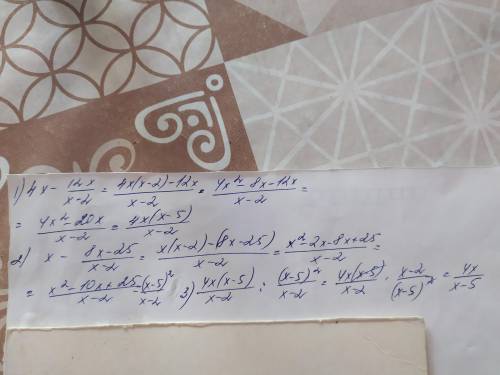 1) 4x - 12x/(x-2) = (4x(x-2)-12x)/(x-2) = (4x²-8x-12x)/(x-2) =
= (4x²-20x)/(x-2) = (4x(x-5))/(x-2)
2) x - (8x-25)/(x-2) = (x(x-2)-(8x-25))/(x-2) = (x²-2x-8x+25)/(x-2) =
= (x²-10x+25)/(x-2) = (x-5)²/(x-2) 3) (4x(x-5))/(x-2) : (x-5)²/(x-2) = (4x(x-5))/(x-2) · (x-2)/(x-5)² = 4x/(x-5)